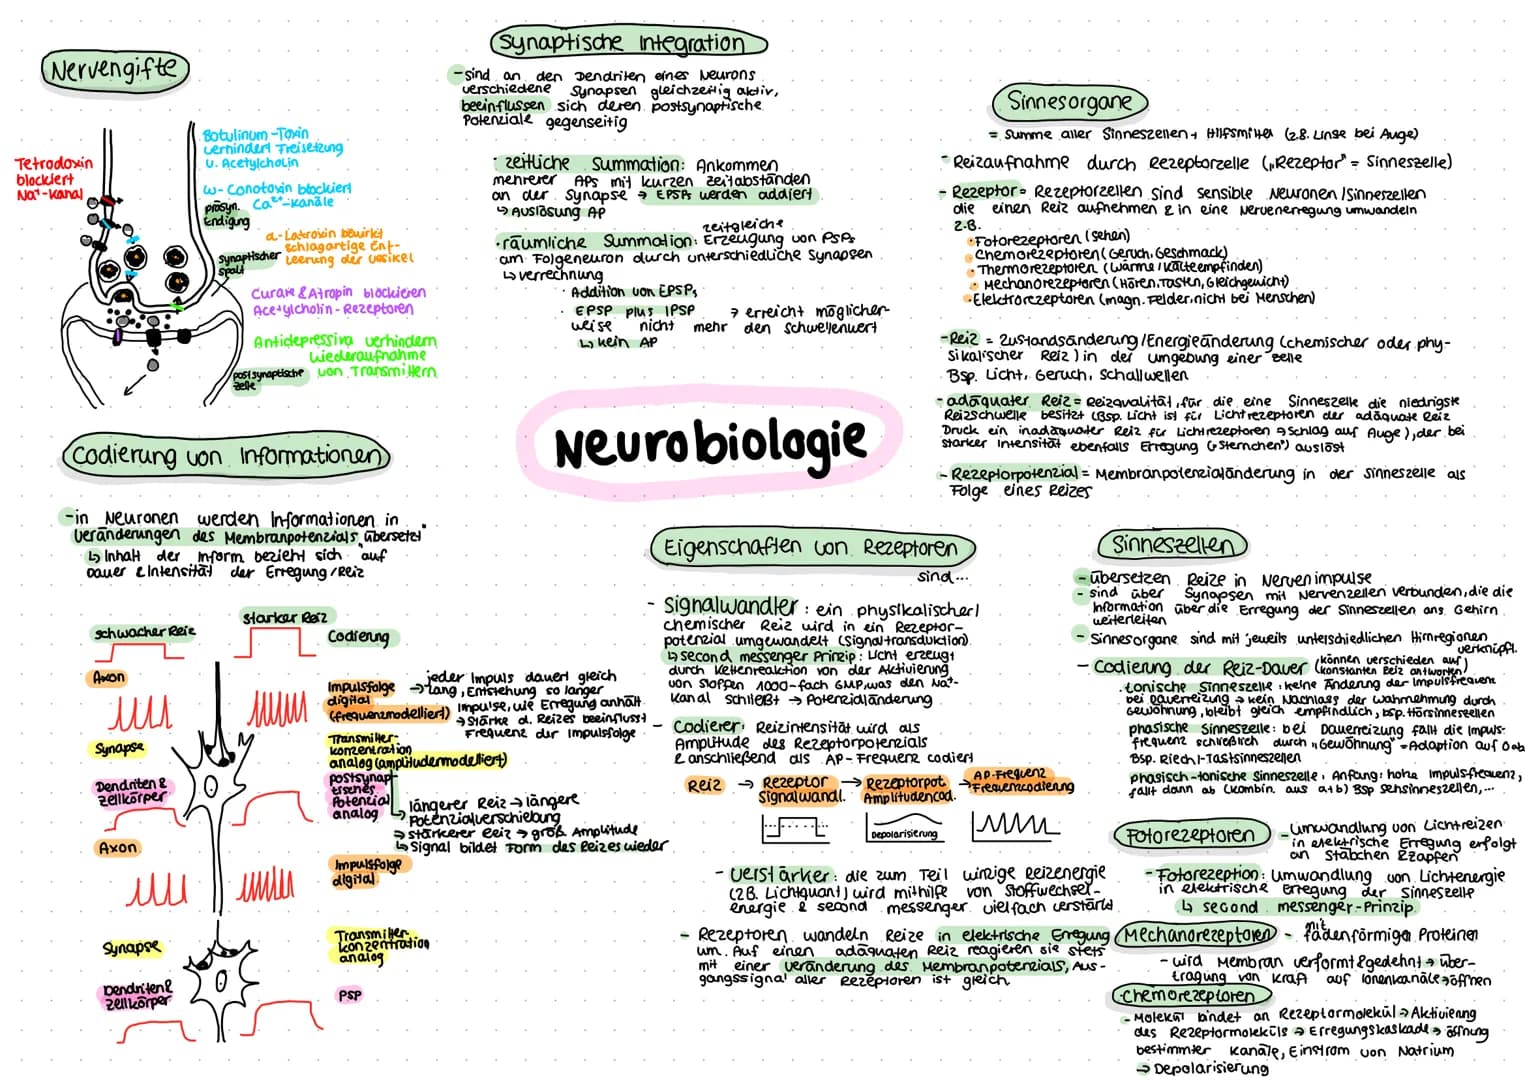 Nervengifte
Tetrodoxin
blockiert
Na⁺-Kanal
Botulinum-Toxin
verhindert Freisetzung
v. Acetylcholin
ω-Conotoxin blockiert
Ca²⁺-Kanäle
präsyn.
Endigung
α-Latroxin bewirkt
schlagartige Ent-
leerung der Vesikel
synaptischer
spalt
Curare & Atropin blockieren
Acetylcholin-Rezeptoren
Antidepressiva verhindern
Wiederaufnahme
von Transmittern
postsynaptische
Zelle
Synaptische Integration
- sind an den Dendriten eines Neurons
verschiedene Synapsen gleichzeitig aktiv,
beeinflussen sich deren postsynaptische
Potenziale gegenseitig
· zeitliche Summation: Ankommen
mehrerer APs mit kurzen Zeitabständen
an der Synapse → EPSPs werden addiert
↳ Auslösung AP
· räumliche Summation: zeitgleiche
Erzeugung von PSPs
am Folgeneuron durch unterschiedliche Synapsen
↳ Verrechnung
· Addition von EPSPs
· EPSP plus IPSP → erreicht möglicher-
weise nicht mehr den Schwellenwert
↳ kein AP
Neurobiologie
Sinnesorgane
= Summe aller Sinneszellen + Hilfsmittel (z.B. Linse bei Auge)
- Reizaufnahme durch Rezeptorzelle („Rezeptor" = Sinneszelle)
- Rezeptor = Rezeptorzellen sind sensible Neuronen/Sinneszellen
die einen Reiz aufnehmen & in eine Nervenerregung umwandeln
z.B.
· Fotorezeptoren (sehen)
· Chemorezeptoren (Geruch, Geschmack)
· Thermorezeptoren (Wärme/Kälteempfinden)
· Mechanorezeptoren (Hören, Tasten, Gleichgewicht)
· Elektrorezeptoren (magn. Felder, nicht bei Menschen)
- Reiz = Zustandsänderung/Energieänderung (chemischer oder phy-
sikalischer Reiz) in der Umgebung einer Zelle
Bsp. Licht, Geruch, Schallwellen
- adäquater Reiz = Reizqualität, für die eine Sinneszelle die niedrigste
Reizschwelle besitzt (Bsp. Licht ist für Lichtrezeptoren der adäquate Reiz
Druck ein inadäquater Reiz für Lichtrezeptoren → Schlag auf Auge), der bei
starker Intensität ebenfalls Erregung („Sternchen") auslöst
- Rezeptorpotenzial = Membranpotenzialänderung in der Sinneszelle als
Folge eines Reizes
Codierung von Informationen
- in Neuronen werden Informationen in
Veränderungen des Membranpotenzials „übersetzt"
↳ Inhalt der Inform. bezieht sich auf
Dauer & Intensität der Erregung/Reiz
schwacher Reiz
starker Reiz
Codierung
Axon
Impulsfolge
digital
(frequenzmodelliert)
→ jeder Impuls dauert gleich
lang, Entstehung so langer
Impulse, wie Erregung anhält
→ Stärke d. Reizes beeinflusst
Frequenz der Impulsfolge
Synapse
Transmitter-
konzentration
analog (amplitudermodelliert)
Dendriten &
Zellkörper
postsynap-
tisches
Potenzial
analog
längerer Reiz → längere
Potenzialverschiebung
→ stärkerer Reiz → größ. Amplitude
↳ Signal bildet Form des Reizes wieder
Axon
Impulsfolge
digital
Synapse
Transmitter-
konzentration
analog
Dendriten &
Zellkörper
PSP
Eigenschaften von Rezeptoren
sind...
- Signalwandler: ein physikalischer/
chemischer Reiz wird in ein Rezeptor-
potenzial umgewandelt (Signaltransduktion)
↳ second messenger Prinzip: Licht erzeugt
durch Kettenreaktion von der Aktivierung
von Stoffen 1000-fach GMP, was den Na⁺-
Kanal schließt → Potenzialänderung
- Codierer: Reizintensität wird als
Amplitude des Rezeptorpotenzials
& anschließend als AP-Frequenz codiert
Reiz → Rezeptor
Signalwandl. → Rezeptorpot.
Amplitudencod. → AP-Frequenz
Frequenzcodierung
Depolarisierung
- Verstärker: die zum Teil winzige Reizenergie
(z.B. Lichtquant) wird mithilfe von Stoffwechsel-
energie & second messenger vielfach verstärkt
- Rezeptoren wandeln Reize in elektrische Erregung
um. Auf einen adäquaten Reiz reagieren sie stets
mit einer Veränderung des Membranpotenzials, Aus-
gangssignal aller Rezeptoren ist gleich
Sinneszellen
- übersetzen Reize in Nervenimpulse
- sind über Synapsen mit Nervenzellen verbunden, die die
Information über die Erregung der Sinneszellen ans Gehirn
weiterleiten
- Sinnesorgane sind mit jeweils unterschiedlichen Hirnregionen
verknüpft.
- Codierung der Reiz-Dauer (können verschieden auf
konstanten Reiz antworten)
· tonische Sinneszelle: keine Änderung der Impulsfrequenz
bei Dauerreizung → kein Nachlass der Wahrnehmung durch
Gewöhnung, bleibt gleich empfindlich, bsp. Hörsinneszellen
phasische Sinneszelle: bei Dauerreizung fällt die Impuls-
frequenz schließlich durch „Gewöhnung" = Adaption auf 0 ab
Bsp. Riech-/Tastsinneszellen
phasisch-tonische Sinneszelle: Anfang: hohe Impulsfrequenz,
fällt dann ab (Kombin. aus a+b) Bsp Sehsinneszellen,...
Fotorezeptoren
- Umwandlung von Lichtreizen
in elektrische Erregung erfolgt
an Stäbchen & Zapfen
- Fotorezeption: Umwandlung von Lichtenergie
in elektrische Erregung der Sinneszelle
↳ second messenger-Prinzip
Mechanorezeptoren - mit
fadenförmigen Proteinen
- wird Membran verformt & gedehnt → Über-
tragung von Kraft auf Ionenkanäle → öffnen
Chemorezeptoren
- Molekül bindet an Rezeptormolekül → Aktivierung
des Rezeptormoleküls → Erregungskaskade → Öffnung
bestimmter Kanäle, Einstrom von Natrium
→ Depolarisierung